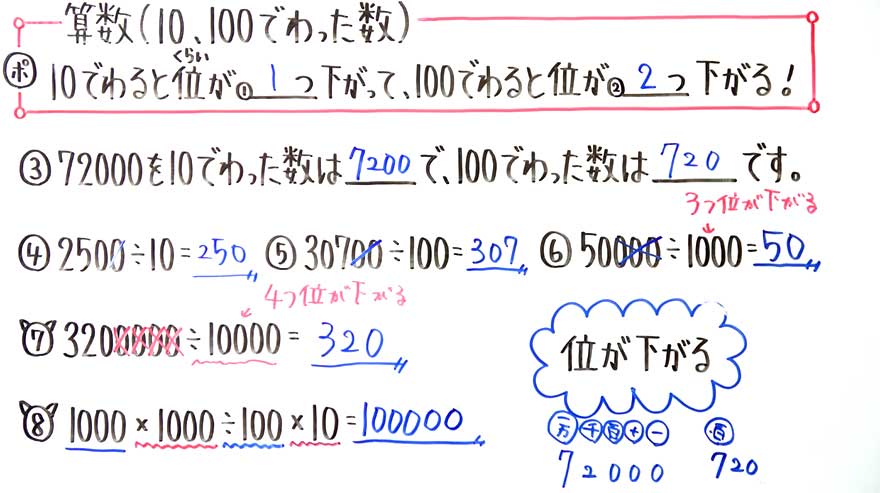 算数(10、100でわった数)
くらい
ポ 10でわると位が①1つ下がって、100でわると位が②2つ下がる!
③72000を10でわった数は7200で、100でわった数は720です。
3つ位が下がる
④2500÷10=250 ⑤30700÷100=307 ⑥50000÷1000=50
4つ位が下がる
⑦3200000÷10000=320
位が下がる
⑧1000×1000÷100×10=100000
一万 千 百 十 一 百
72000 720